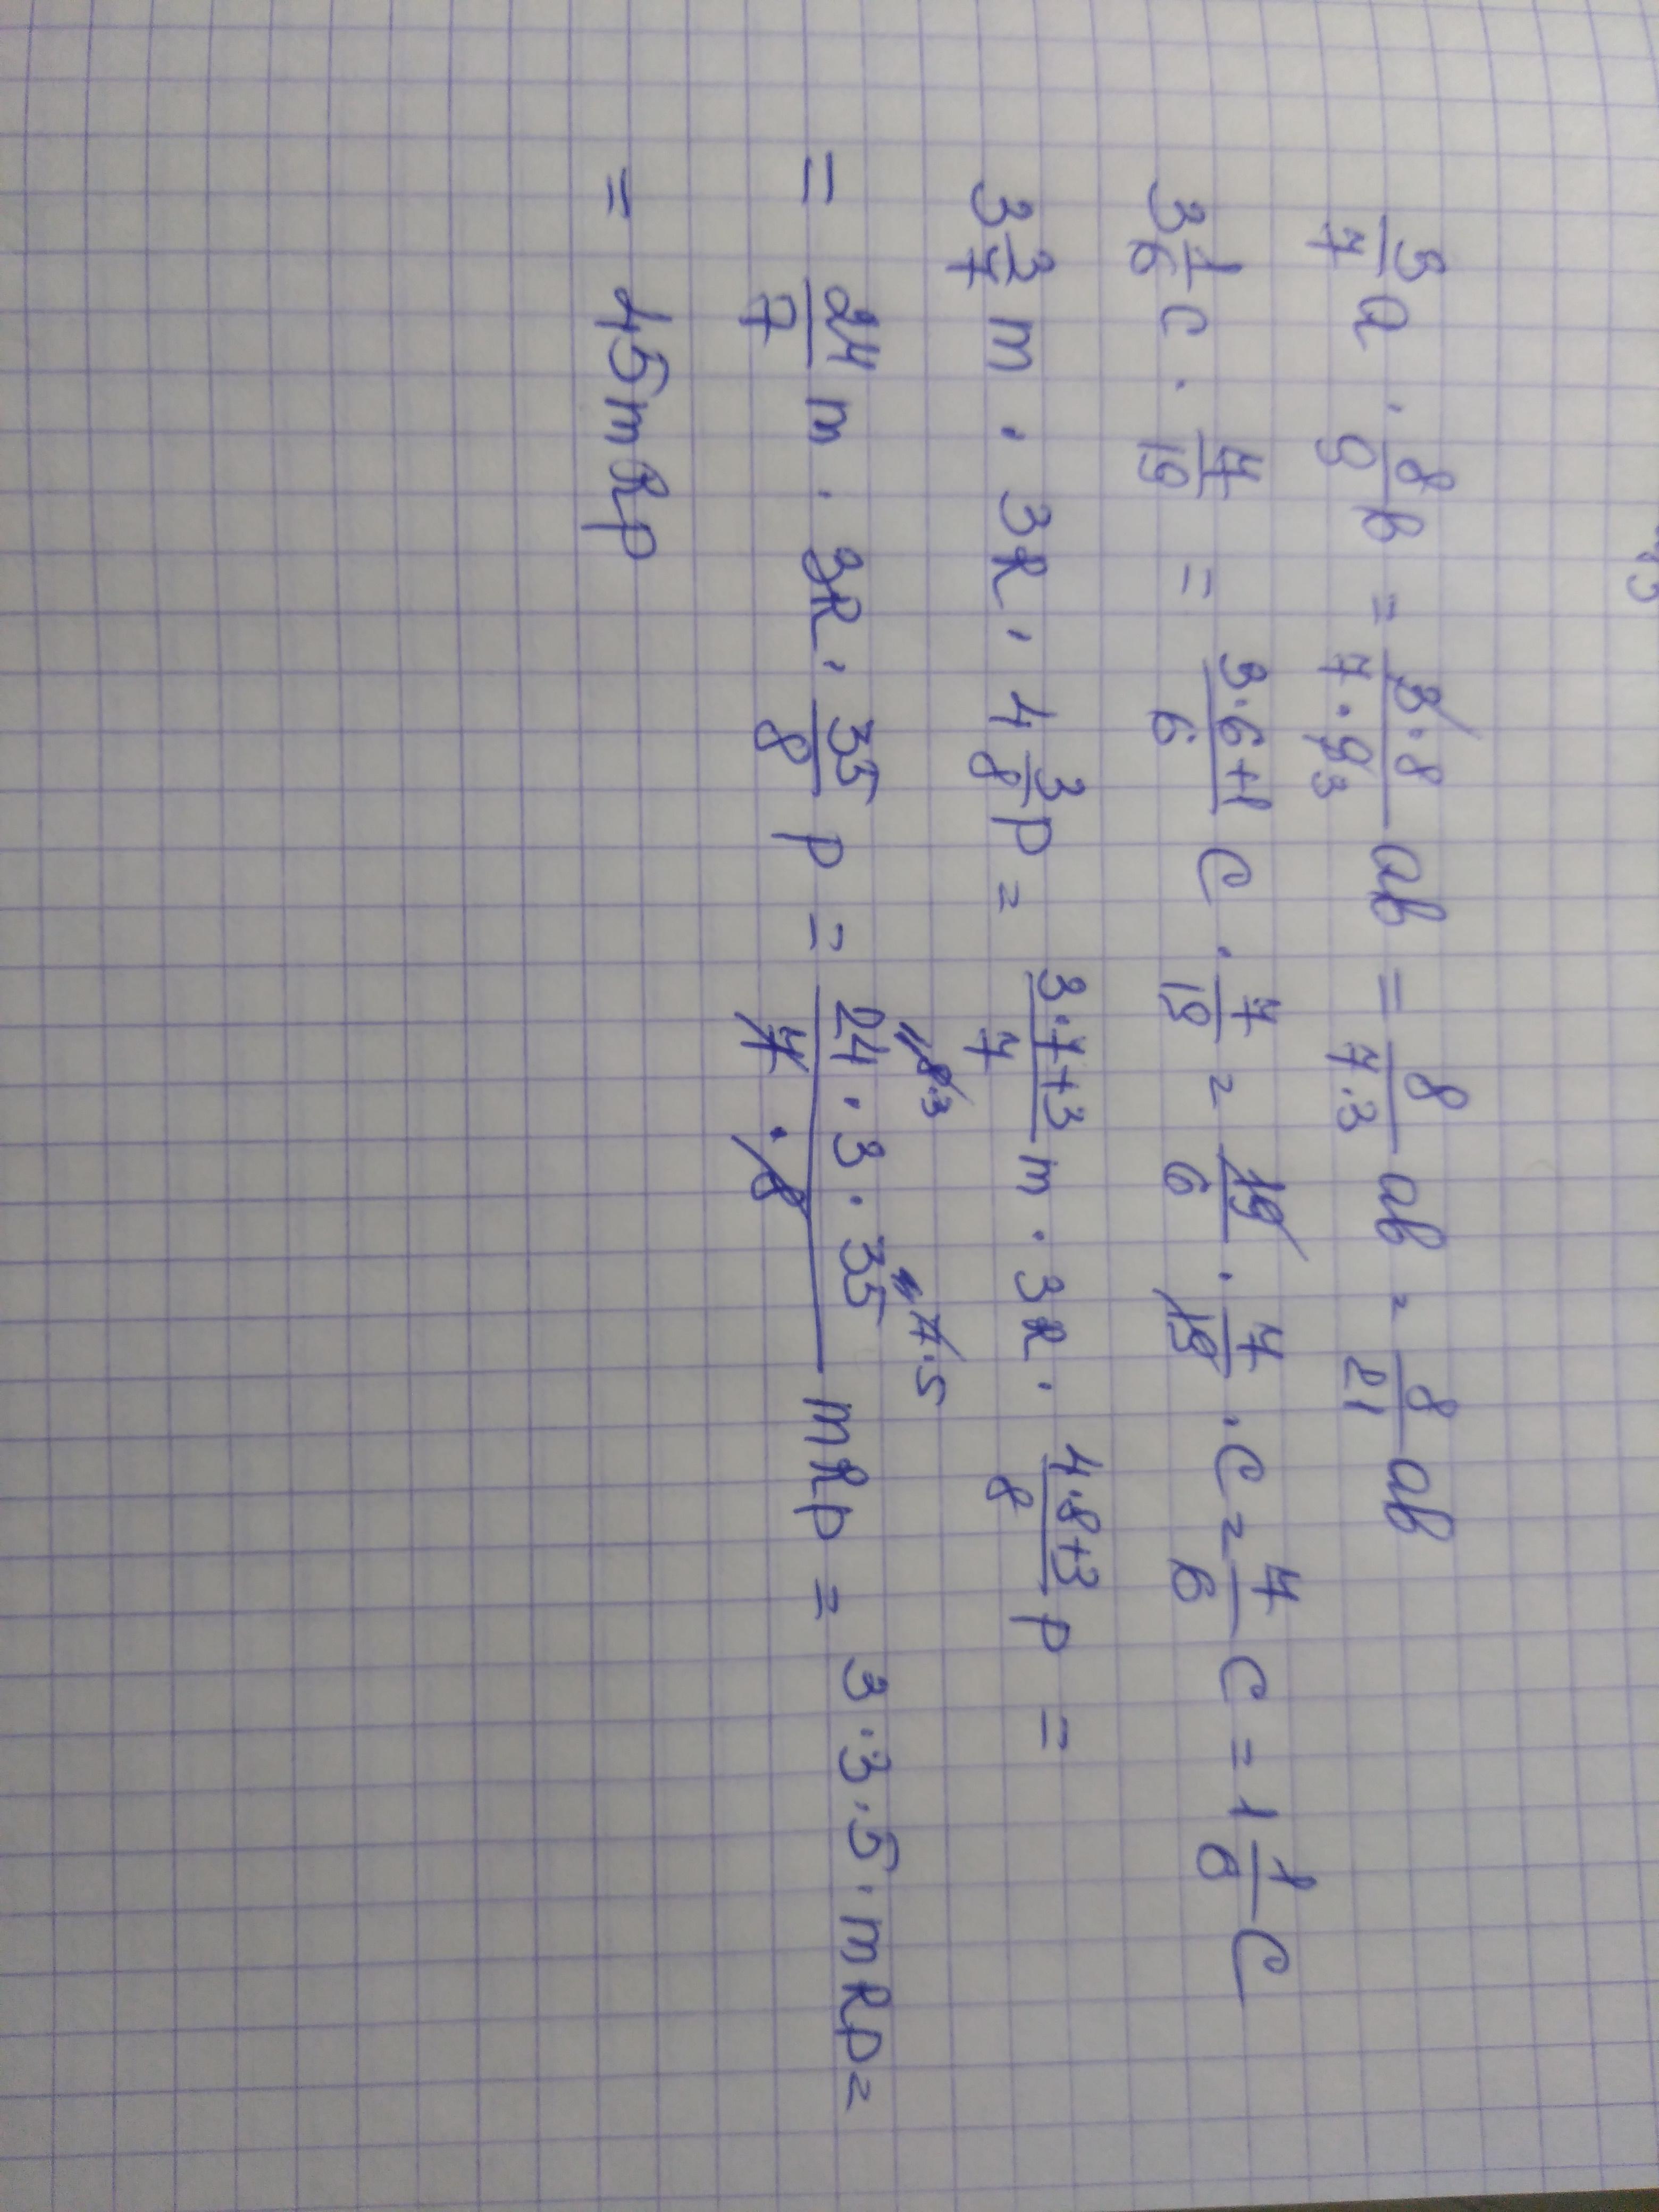 3/7 a · 8/9 b = 3·8/7·9 3 ab = 8/7·3 ab = 8/21 ab
3 1/6 c · 7/19 = 3·6+1/6 c · 7/19 = 19/6 · 7/19 · c = 7/6 c = 1 1/6 c
3 3/7 m · 3k · 4 3/8 p = 3·7+3/7 m · 3k · 4·8+3/8 p =
= 24/7 m · 3k · 35/8 p = 24·3·35/7·8 mkp = 3·3·5·mkp =
8·3 7·5
= 45mkp